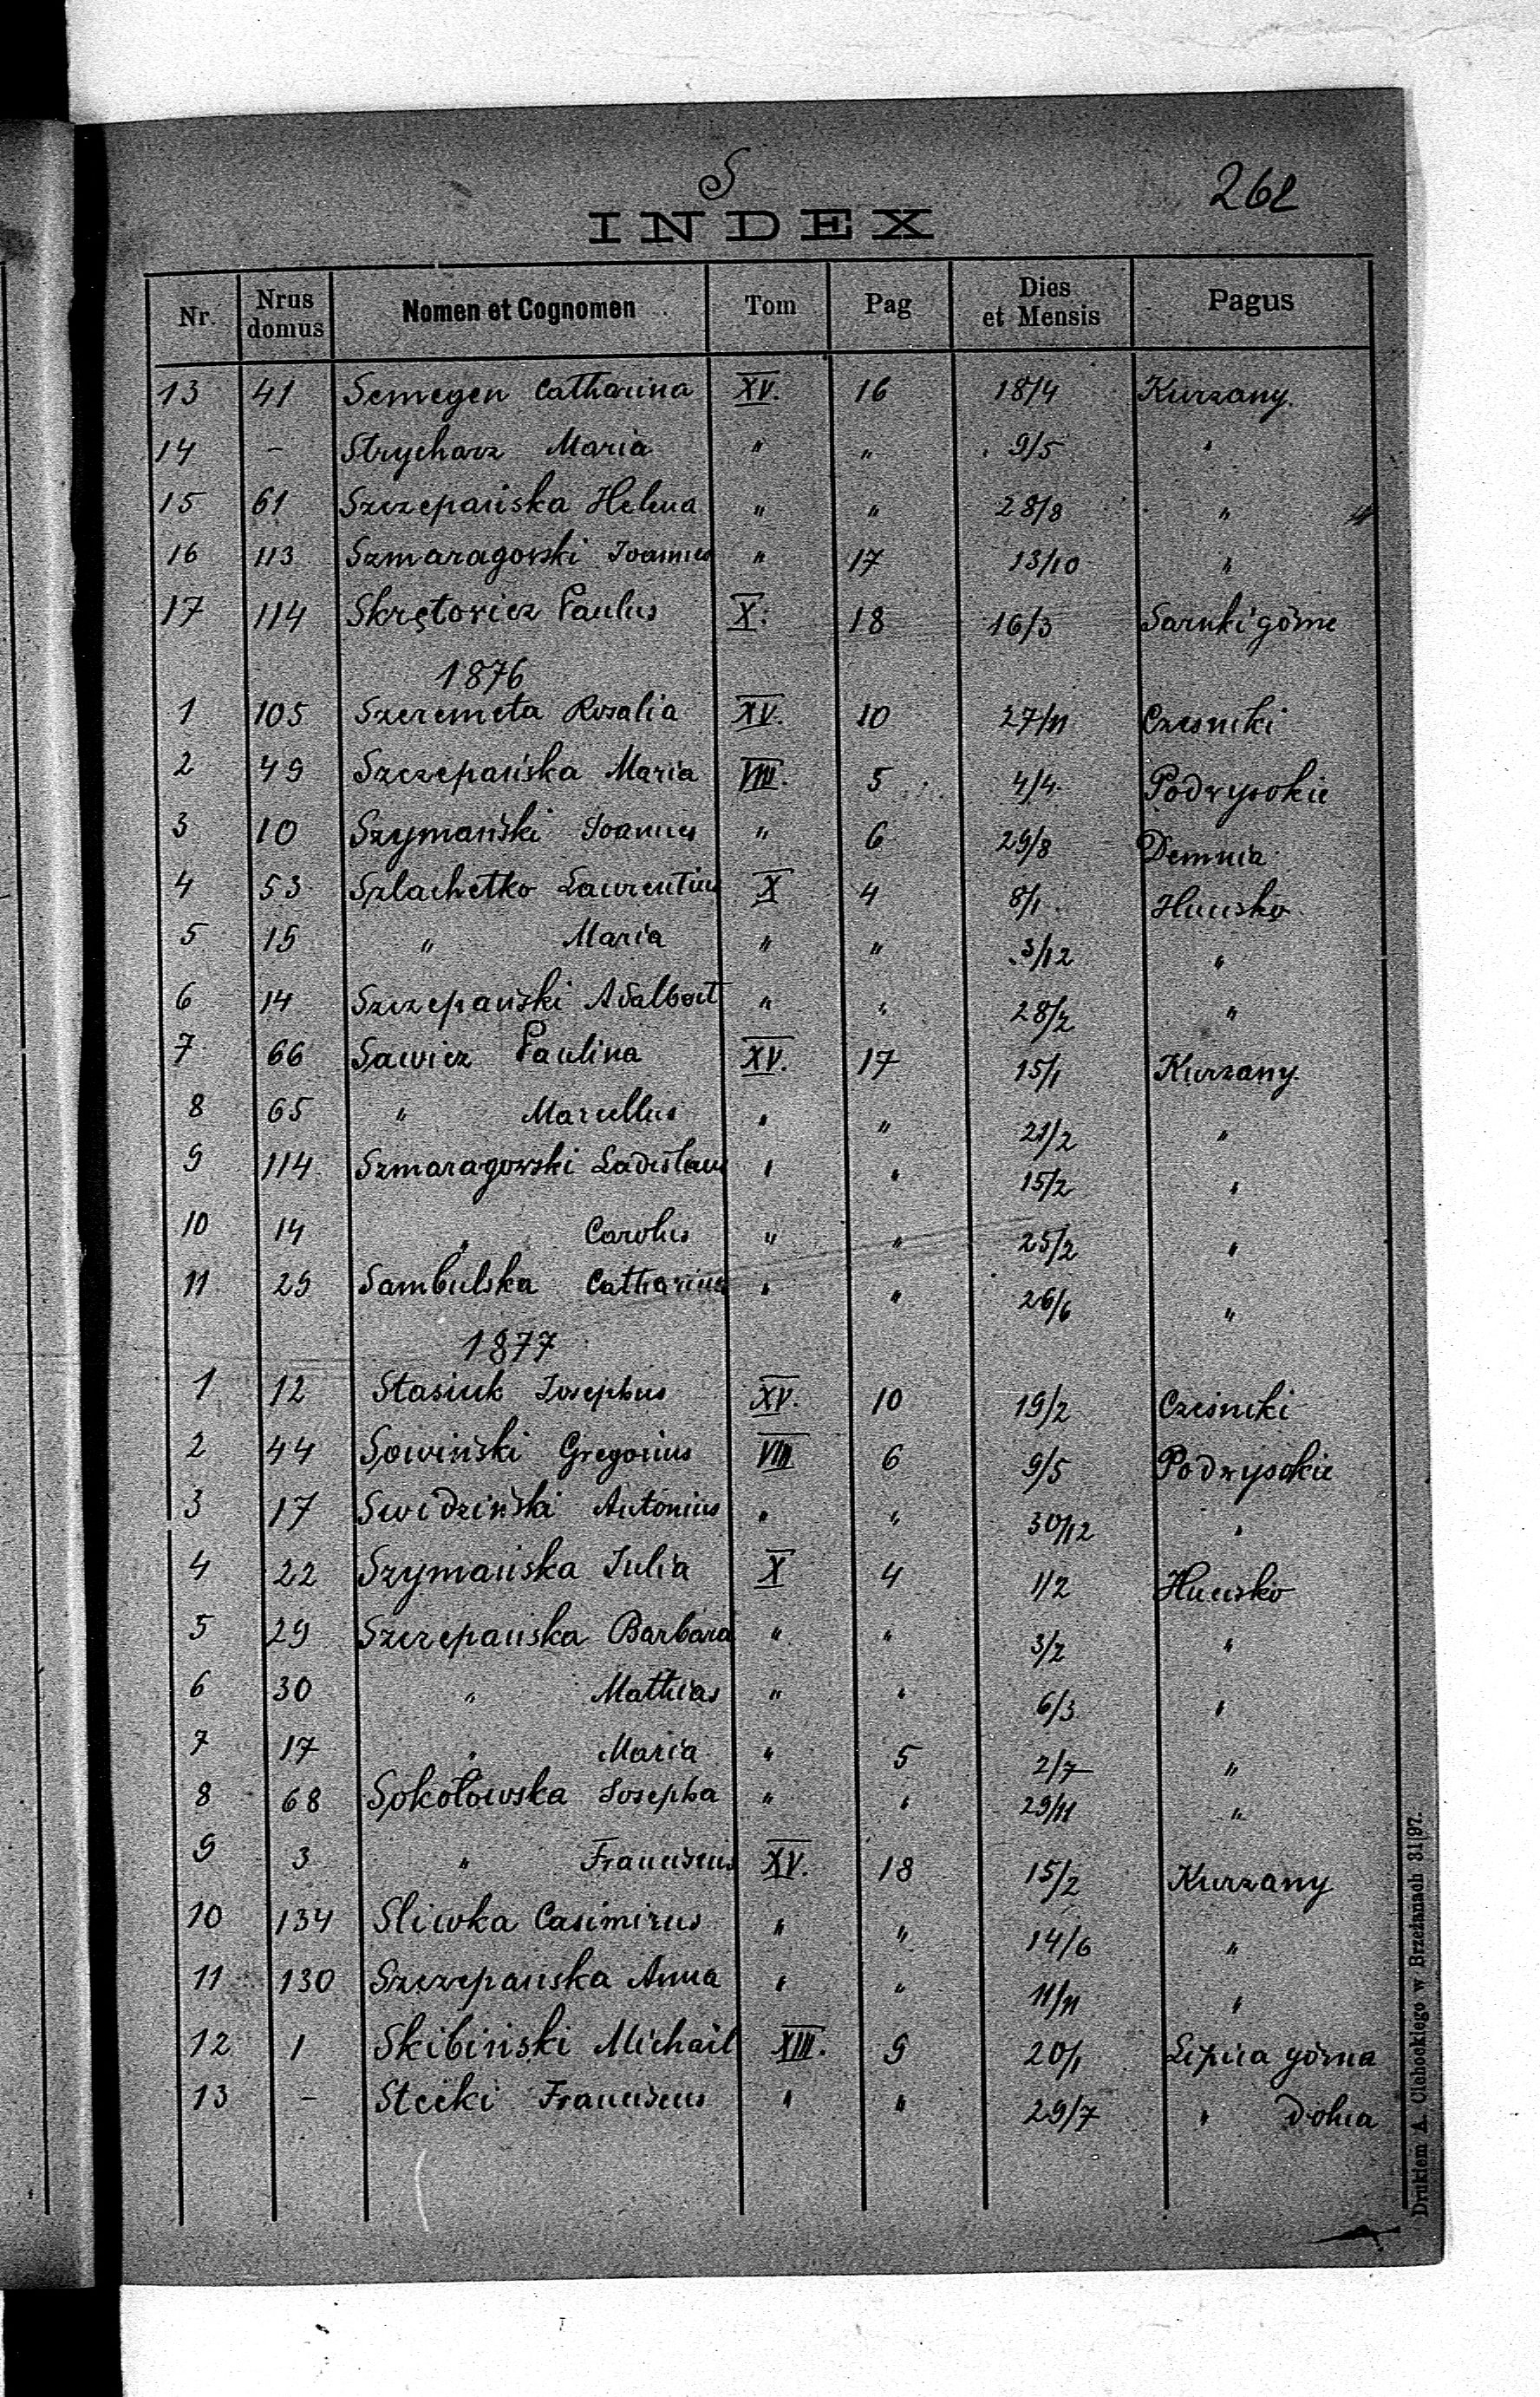 S
262
INDEX
Nr. Nrus domus Nomen et Cognomen Tom Pag Dies et Mensis Pagus
13 41 Semegen Catharina XV. 16 18/4 Kurzany.
14 – Strycharz Maria " " 9/5 "
15 61 Szczepańska Helena " " 28/8 "
16 113 Szmaragowski Joannes " 17 13/10 "
17 114 Skrętowicz Paulus X. 18 16/3 Sarnki górne
1876
1 105 Szeremeta Rosalia XV. 10 27/11 Czesniki
2 49 Szczepańska Maria VIII. 5 4/4 Podwysokie
3 10 Szymański Joannes " 6 29/8 Demnia
4 53 Szlachetko Laurentius X 4 8/1 Hucisko
5 15 " Maria " " 3/12 "
6 14 Szczepański Adalbert " " 28/2 "
7 66 Sawicz Paulina XV. 17 15/1 Kurzany
8 65 " Marcellus " " 21/2 "
9 114 Szmaragowski Ladislaus " " 15/2 "
10 14 " Carolus " " 25/2 "
11 29 Sambulska Catharina " " 26/6 "
1877
1 12 Stasiuk Josephus XV. 10 19/2 Cześniki
2 44 Sowiński Gregorius VIII 6 9/5 Podwysokie
3 17 Swidziński Antonius " " 30/12 "
4 22 Szymańska Julia X 4 1/2 Hucisko
5 29 Szczepańska Barbara " " 3/2 "
6 30 " Mathias " " 6/3 "
7 17 " Maria " 5 2/7 "
8 68 Sokołowska Josepha " " 29/11 "
9 3 " Franciscus XV. 18 15/2 Kurzany
10 134 Sliwka Casimirus " " 14/6 "
11 130 Szczepańska Anna " " 11/11 "
12 1 Skibiński Michaël XIII. 9 20/1 Lipica górna
13 – Stecki Franciscus " " 29/7 " dolna
Drukiem A. Clobockiego w Brzeżanach 31|97.